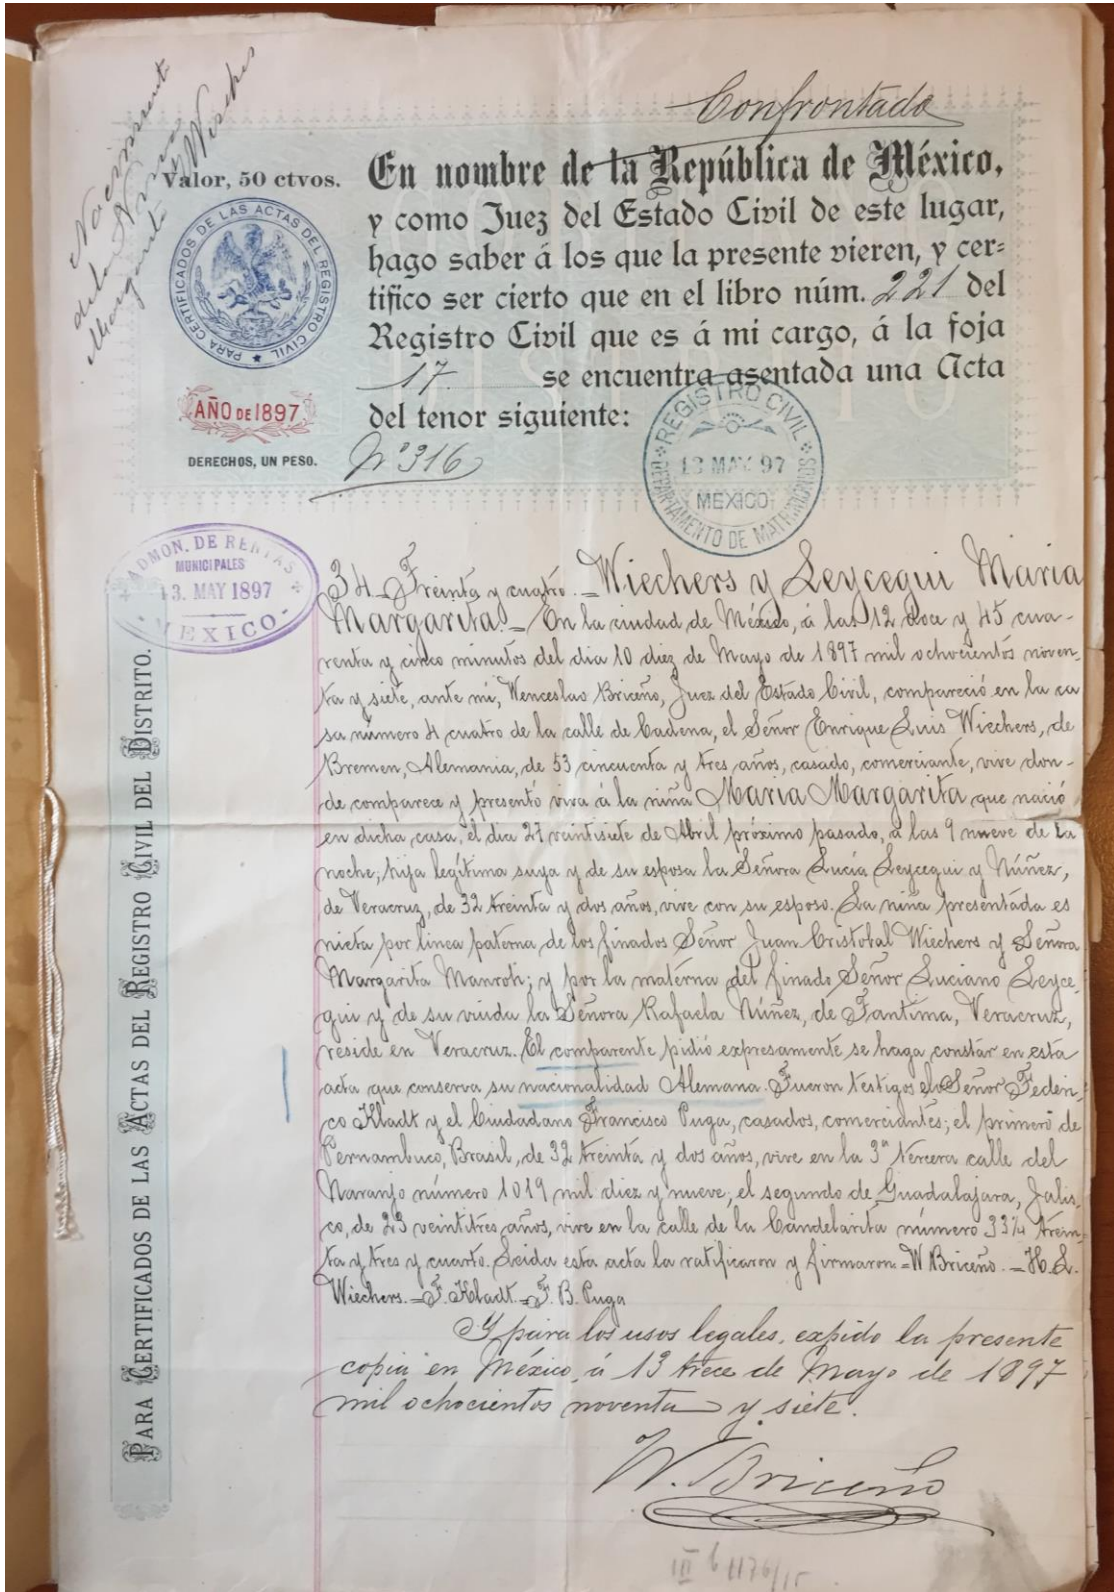 Confrontado
Nacimiento
de la Niña
Margarita Wiechers
Valor, 50 ctvos.
PARA CERTIFICADOS DE LAS ACTAS DEL REGISTRO CIVIL
AÑO DE 1897
DERECHOS, UN PESO.
En nombre de la República de México,
y como Juez del Estado Civil de este lugar,
hago saber á los que la presente vieren, y cer=
tifico ser cierto que en el libro núm. 221 del
Registro Civil que es á mi cargo, á la foja
17. se encuentra asentada una Acta
del tenor siguiente:
Nº 316
REGISTRO CIVIL
13 MAY 97
MEXICO
DEPARTAMENTO DE MATRIMONIOS
ADMON. DE RENTAS
MUNICIPALES
13. MAY 1897
MEXICO
PARA CERTIFICADOS DE LAS ACTAS DEL REGISTRO CIVIL DEL DISTRITO.
34 Treinta y cuatro. = Wiechers y Leycegui Maria
Margarita. = En la ciudad de México, á las 12 doce y 45 cua-
renta y cinco minutos del dia 10 diez de Mayo de 1897 mil ochocientos noven-
ta y siete, ante mi, Wenceslao Briceño, Juez del Estado Civil, compareció en la ca
sa número 4 cuatro de la calle de Cadena, el Señor Enrique Luis Wiechers, de
Bremen, Alemania, de 53 cincuenta y tres años, casado, comerciante, vive don-
de comparece y presentó viva á la niña Maria Margarita que nació
en dicha casa, el dia 27 veintisiete de Abril próximo pasado, á las 9 nueve de la
noche; hija legítima suya y de su esposa la Señora Lucía Leycegui y Núñez,
de Veracruz, de 32 treinta y dos años, vive con su esposo. La niña presentada es
nieta por linea paterna de los finados Señor Juan Cristobal Wiechers y Señora
Margarita Manroti; y por la materna del finado Señor Luciano Leyce-
gui y de su viuda la Señora Rafaela Núñez, de Tantima, Veracruz,
reside en Veracruz. El comparente pidió expresamente se haga constar en esta
acta que conserva su nacionalidad Alemana. Fueron testigos el Señor Federi-
co Kladt y el Ciudadano Francisco Puga, casados, comerciantes; el primero de
Pernambuco, Brasil, de 32 treinta y dos años, vive en la 3ª tercera calle del
Naranjo número 1019 mil diez y nueve; el segundo de Guadalajara, Jalis-
co, de 23 veintitres años, vive en la calle de la Candelarita número 33¼ trein-
ta y tres y cuarto. Leida esta acta la ratificaron y firmaron = W Briceño. = H. L.
Wiechers. = F. Kladt. = F. B. Puga
Y para los usos legales, expido la presente
copia en México, á 13 trece de Mayo de 1897
mil ochocientos noventa y siete.
W. Briceño